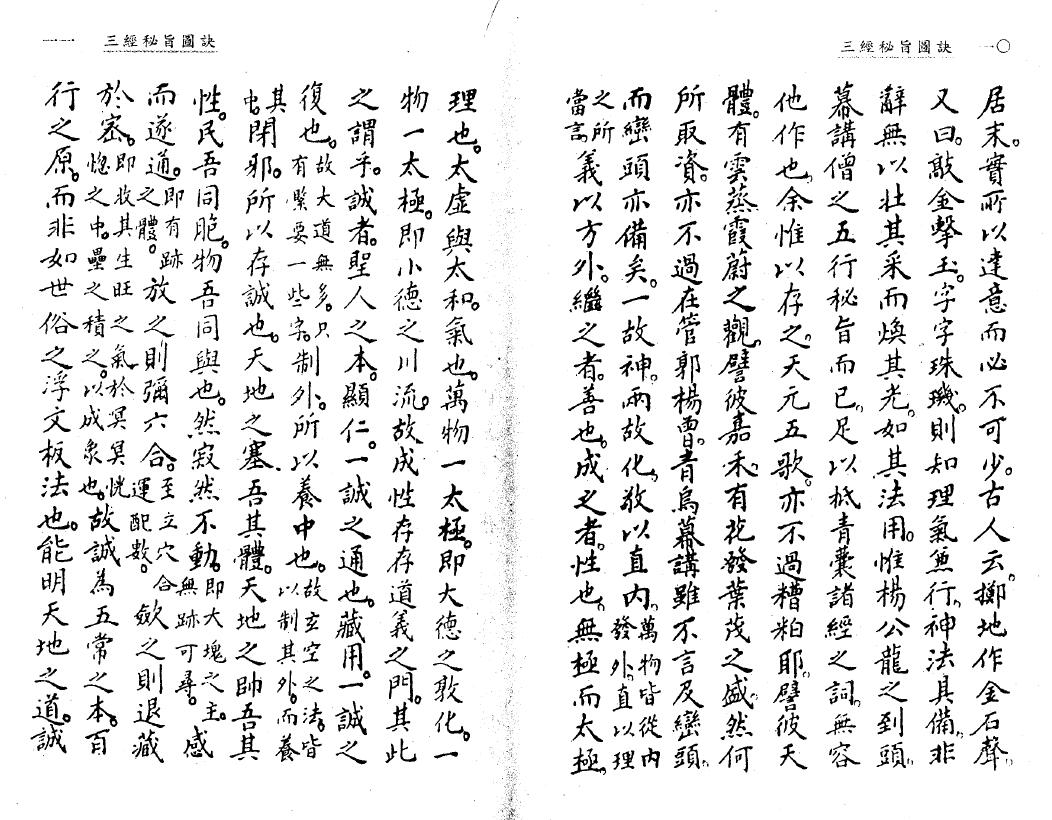 三經秘旨圖訣
一〇
居末。實所以達意而必不可少。古人云。擲地作金石聲。
又曰。敲金擊玉。字字珠璣。則知理氣並行。神法具備。非
辭無以壯其采而煥其光。如其法用。惟楊公龍之到頭。
幕講僧之五行秘旨而已。足以柢青囊諸經之詞。無容
他作也。余惟以存之。天元五歌。亦不過糟粕耶。譬彼天
體。有雲蒸霞蔚之觀。譬彼嘉禾。有花發葉茂之盛。然何
所取資。亦不過在管郭楊曾。青烏幕講。雖不言及巒頭。
而巒頭亦備矣。一故神。兩故化。敬以直內。萬物皆從內發外。直以理
之所當言。義以方外。繼之者。善也。成之者。性也。無極而太極。
三經秘旨圖訣
一一
理也。太虛與太和。氣也。萬物一太極。即大德之敦化。一
物一太極。即小德之川流。故成性存存。道義之門。其此
之謂乎。誠者。聖人之本。顯仁。一誠之通也。藏用。一誠之
復也。故大道無多。只有緊要一些字。制外。所以養中也。故玄空之法。皆以制其外。而養
其中。閑邪。所以存誠也。天地之塞。吾其體。天地之帥。吾其
性。民吾同胞。物吾同與也。然寂然不動。即大塊之主。無跡可尋。感
而遂通。即有跡之體。放之則彌六合。至立穴合運配數。斂之則退藏
於密。即收其生旺之氣於冥冥恍惚之中。壘之積之。以成象也。故誠為五常之本。百
行之原。而非如世俗之浮文板法也。能明天地之道。誠